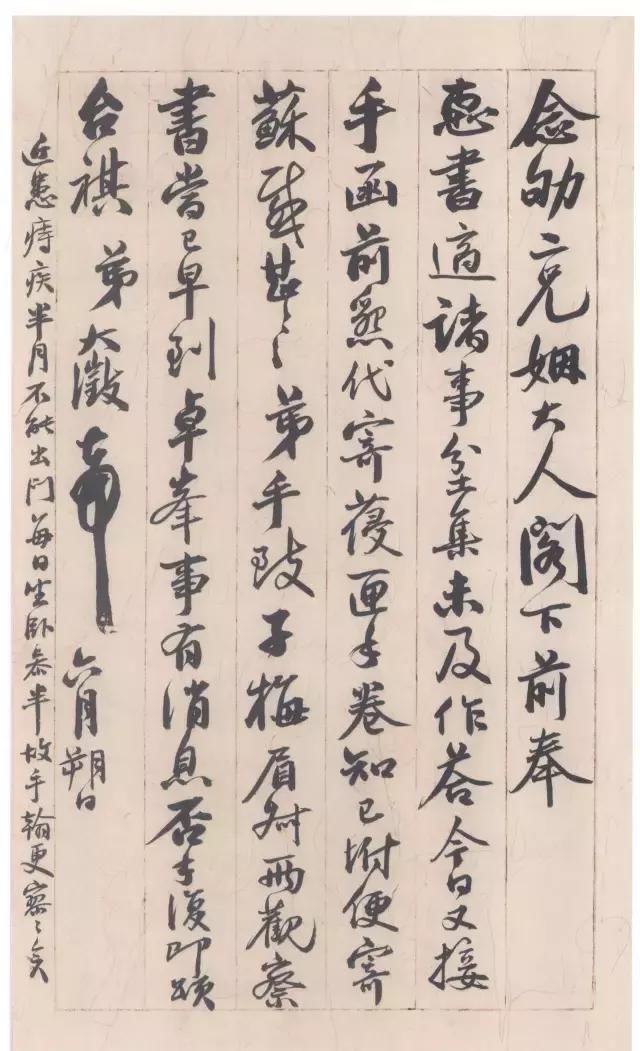 念劬二兄姻大人閣下前奉
惠書適諸事坌集未及作荅今日又接
手函前懇代寄蕿匣手卷知已坿便寄
蘇感甚〻弟手致子梅眉叔兩觀察
書當已早到卓峯事有消息否手復叩頌
台祺 弟大澂頓首 六月朔日
近患痔疾半月不能出門每日坐臥參半故手翰更寥〻矣